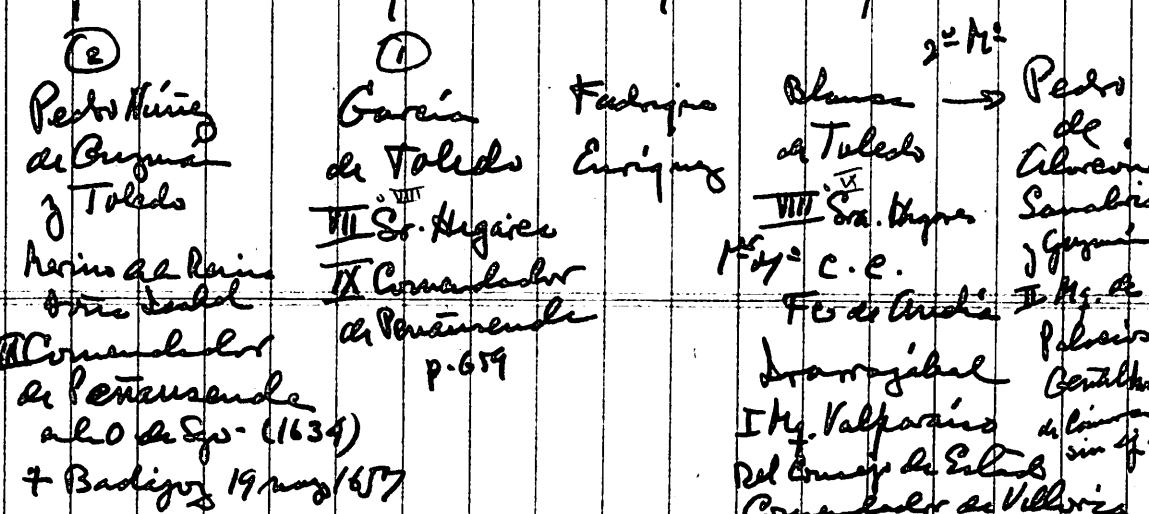 ②
Pedro Núñez
de Guzmán
y Toledo
Merino de la Reina
doña Isabel
Comendador
de Peñausende
de la O de Sgo- (1634)
+ Badajoz 19 may 1657
①
García
de Toledo
VIII
VII Sr. Higares
IX Comendador
de Peñausende
p. 659
Fadrique
Enríquez
2º Mº
Blanca →
de Toledo
VI
VIII Sra. Higares
1º Mº c.c.
Fco de Andía
Irarrazábal
I Mq. Valparaíso
Del Consejo de Estado
Comendador de Villoria
Pedro
de
Alarcón
Sanabria
y Guzmán
II Mq. de
Palacios
Gentilho
de Cámara
sin